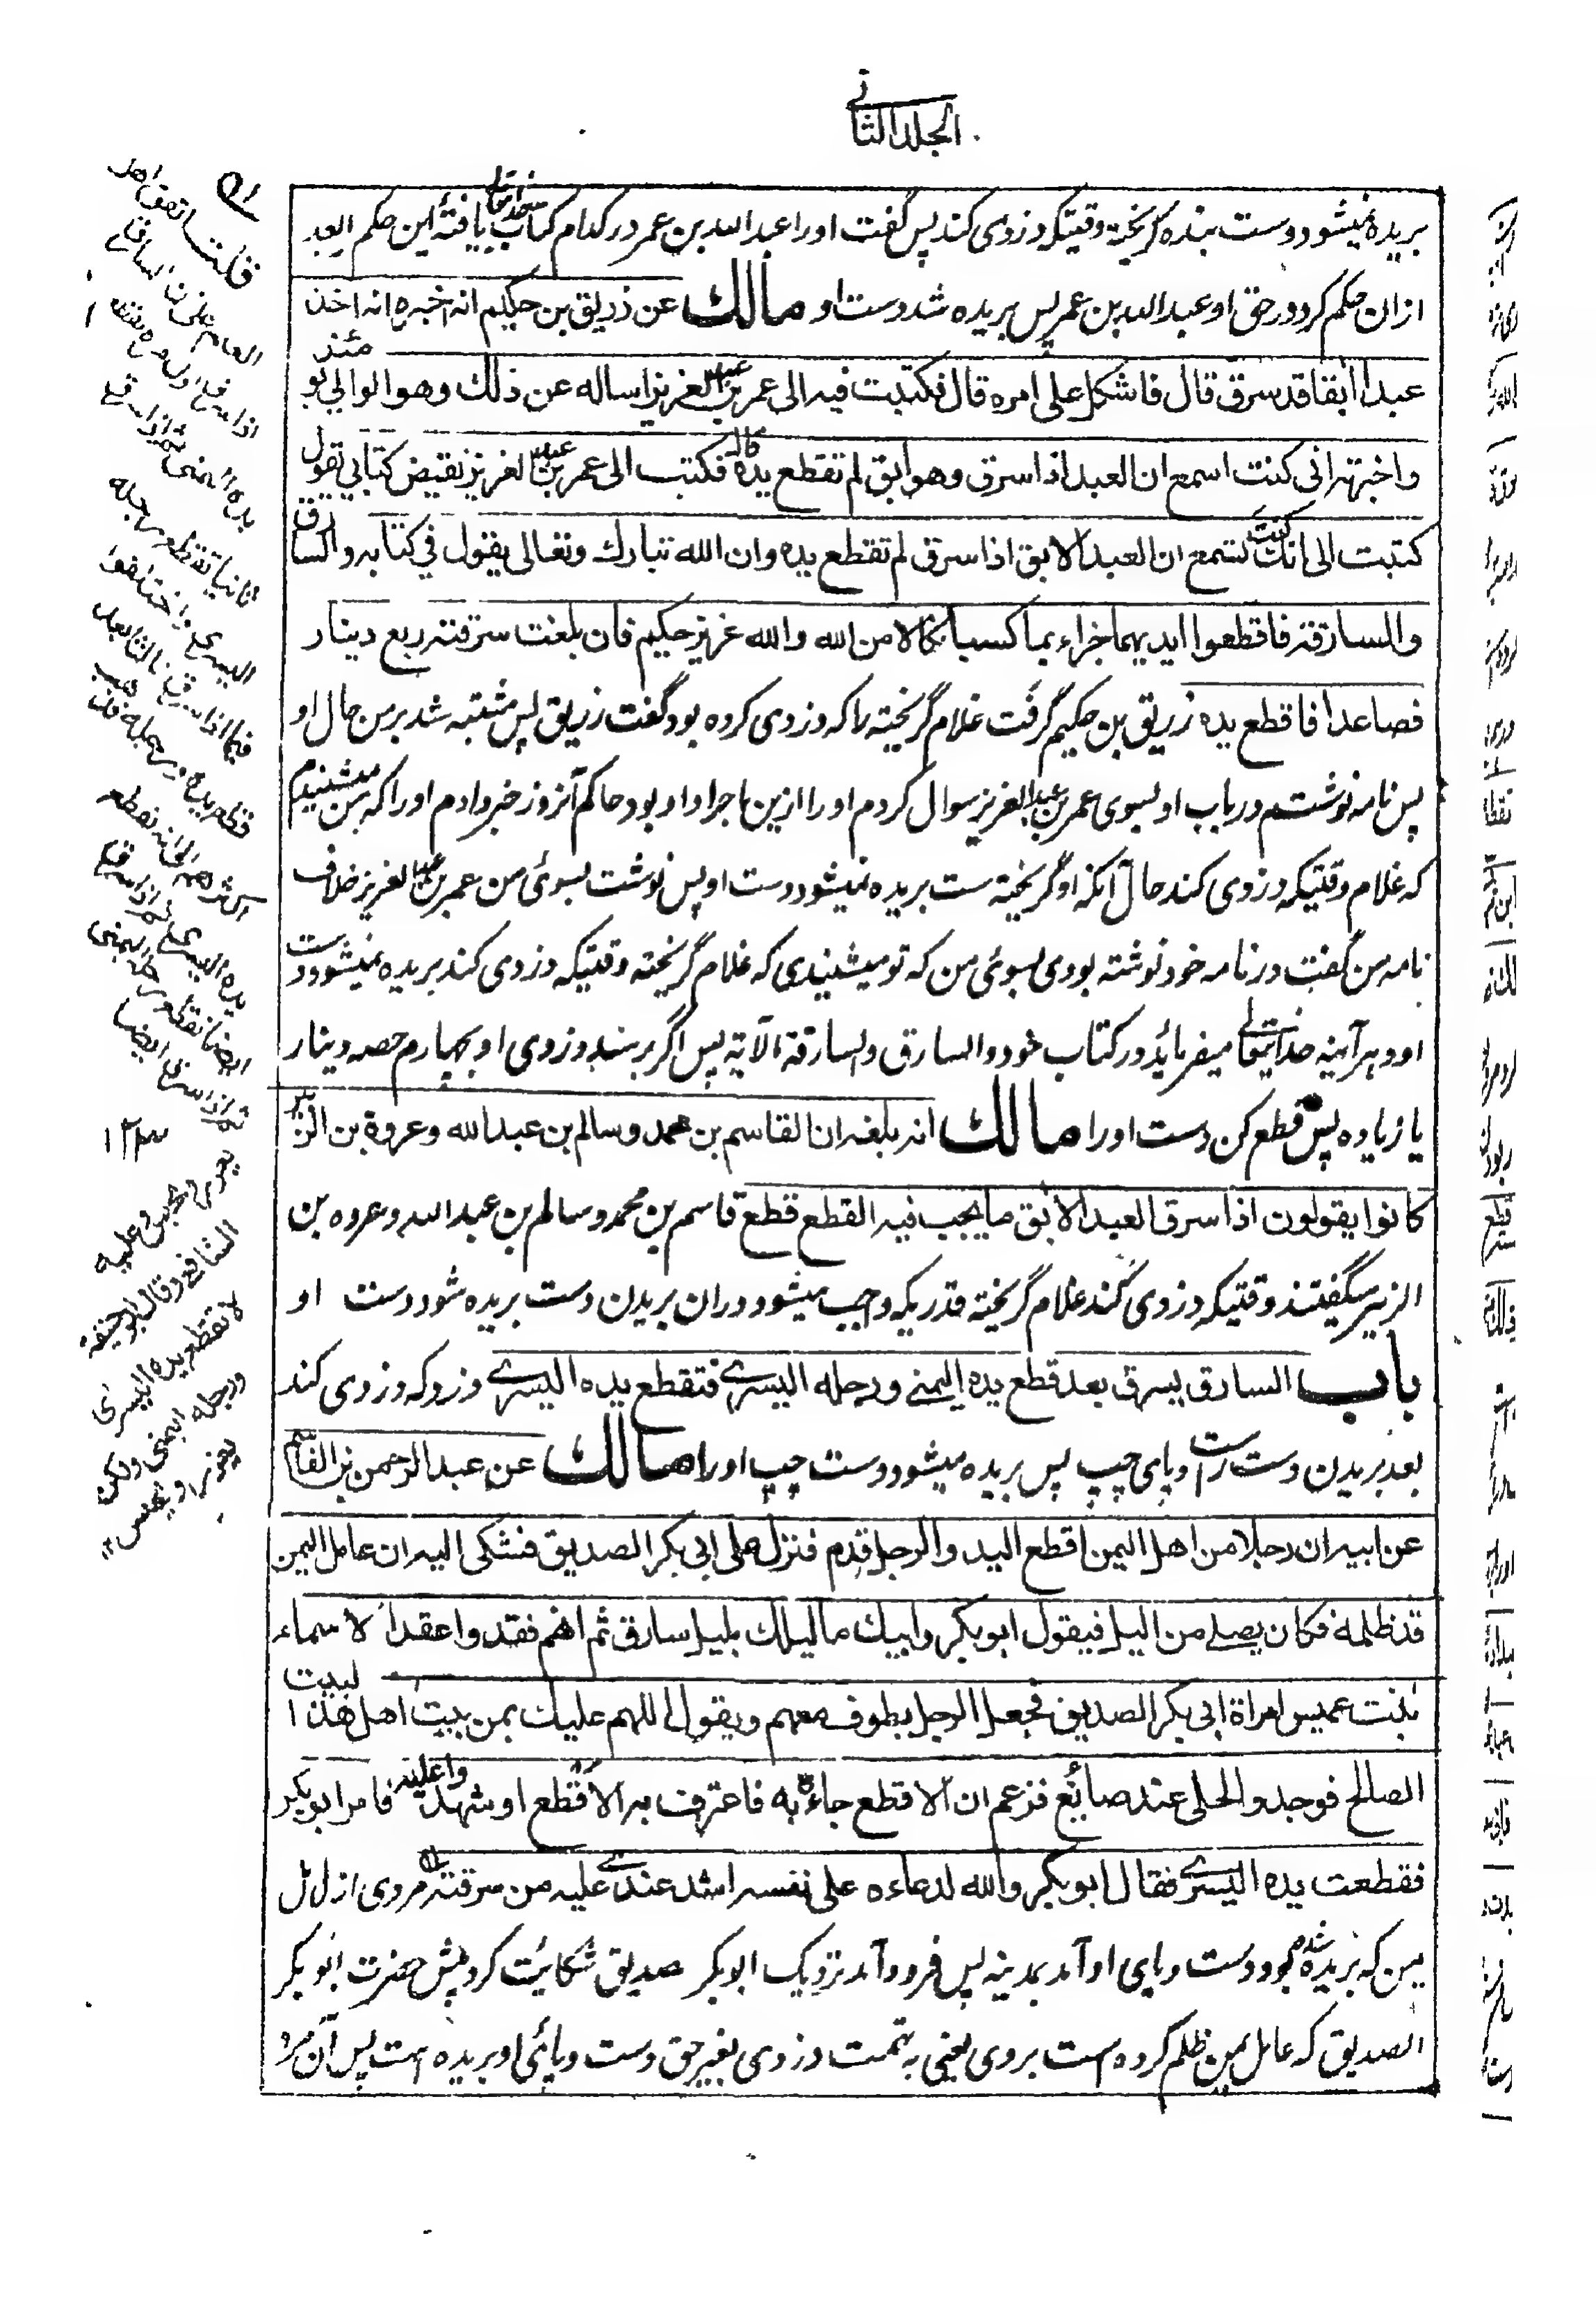 الجلد الثانی
بریده نمیشود دست بنده گریخته وقتیکه دزدی کند پس گفت اورا عبد الله بن عمر در کدام کتاب خدا تعالی یافتهٔ این حکم را بعد
ازان حکم کرد در حق او عبد الله بن عمر پس بریده شد دست او مالك عن زريق بن حكيم انه اخبره انه اخذ
عبدا ابقا قد سرق قال فاشكل على امره قال فكتبت فيه الى عمر بن عبد العزيز اساله عن ذلك وهو الوالي يومئذ
واخبرته انی كنت اسمع ان العبد اذا سرق وهو ابق لم تقطع يده قال فكتب الى عمر بن عبد العزيز نقيض كتابي يقول
كتبت الى انك كنت تسمع ان العبد الابق اذا سرق لم تقطع يده وان الله تبارك وتعالى يقول في كتابه والسارق
والسارقة فاقطعوا ايديهما جزاء بما كسبا نكالا من الله والله عزيز حكيم فان بلغت سرقته ربع دينار
فصاعدا فاقطع يده زریق بن حکیم گرفت غلام گریخته را که دزدی کرده بود گفت زریق پس مشتبه شد بر من حال او
پس نامه نوشتم در باب او بسوی عمر بن عبد العزیز سوال کردم اورا ازین ماجرا و او بود حاکم آنروز خبر دادم اورا که من میشنیدم
که غلام وقتیکه دزدی کند حال آنکه او گریخته ست بریده نمیشود دست او پس نوشت بسوئی من عمر بن عبد العزیز خلاف
نامه من گفت در نامه خود نوشته بودی بسوئی من که تو میشنیدی که غلام گریخته وقتیکه دزدی کند بریده نمیشود دست
او و هر آینه خدایتعالی میفرماید در کتاب خود والسارق والسارقة الآیة پس اگر برسد دزدی او بچهارم حصه دینار
یا زیاده پس قطع کن دست اورا مالك انه بلغه ان القاسم بن محمد وسالم بن عبد الله وعروة بن الزبير
كانوا يقولون اذا سرق العبد الابق ما يجب فيه القطع قطع قاسم بن محمد و سالم بن عبد الله و عروه بن
الزبیر میگفتند وقتیکه دزدی کند غلام گریخته قدریکه واجب میشود دران بریدن دست بریده شود دست او
باب السارق يسرق بعد قطع يده اليمنے ورجله اليسرے فتقطع يده اليسرے دزد که دزدی کند
بعد بریدن دست راست و پای چپ پس بریده میشود دست چپ اورا مالك عن عبد الرحمن بن القاسم
عن ابيه ان رجلا من اهل اليمن اقطع اليد والرجل قدم فنزل على ابي بكر الصديق فشكى اليه ان عامل اليمن
قد ظلمه فكان يصلے من اليل فيقول ابو بكر وابيك ما ليلك بليل سارق ثم انهم فقدوا عقدا لاسماء
بنت عميس امراة ابي بكر الصديق فجعل الرجل يطوف معهم ويقول اللهم عليك بمن بيت اهل هذا البيت
الصالح فوجدوا الحلى عند صائغ فزعم ان الاقطع جاءه به فاعترف به الاقطع او شهدوا عليه فامر ابو بكر
فقطعت يده اليسرے فقال ابو بكر والله لدعاءه على نفسه اشد عندے عليه من سرقته مردی از اهل
یمن که بریده شده بود دست و پای او آمد بمدینه پس فرود آمد نزدیک ابو بکر صدیق شکایت کرد پیش حضرت ابو بکر
الصدیق که عامل یمن ظلم کرده است بروی یعنی به تهمت دزدی بغیر حق دست و پائی او بریده است پس آن مرد
قلت اتفق اهل
العلم على ان السارق
اذا سرق اول مرة تقطع
يده اليمنى ثم اذا سرق
ثانيا تقطع رجله
اليسرى واختلفوا
فيما اذا سرق ثالثا بعد
قطع يده ورجله فذهب
اكثرهم الى انه تقطع
يده اليسرى ثم اذا سرق
ايضا تقطع رجله اليمنى
ثم اذا سرق ايضا
يعزر ويحبس وعليه
الشافعي وقال ابو حنيفة
لا تقطع يده اليسرى
ورجله اليمنى ولكن
يعزر ويحبس